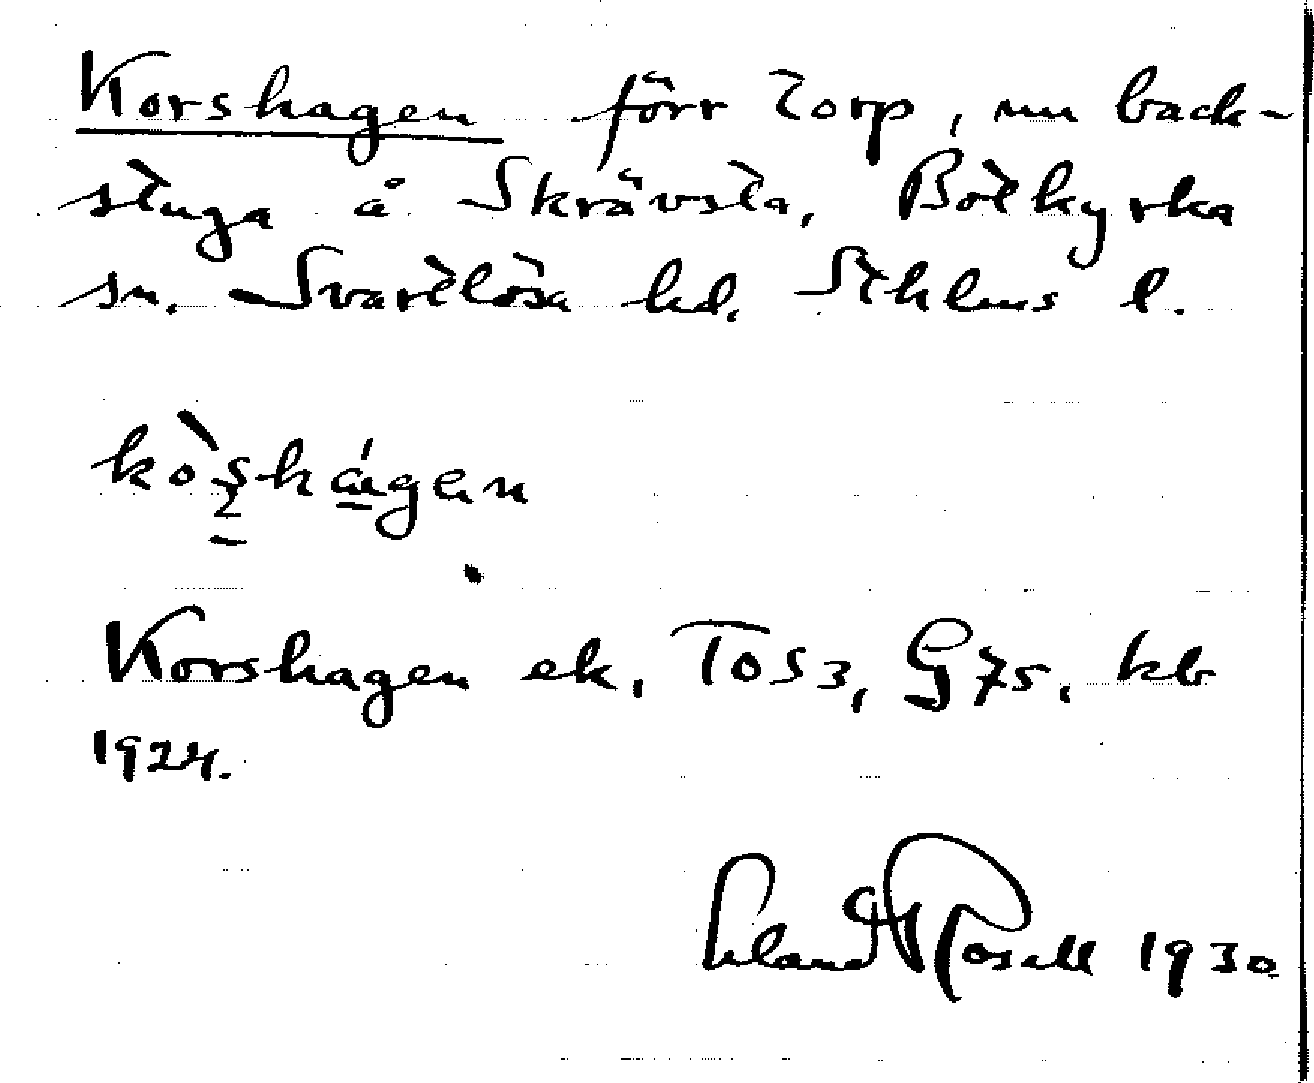 Korshagen förr torp, nu back-
stuga å Skrävsta, Botkyrka
sn. Svartlösa hd. Sthlms l.
kòșhágen
Korshagen ek, TOS3, G75, kb
1924.
Erland Rosell 1930